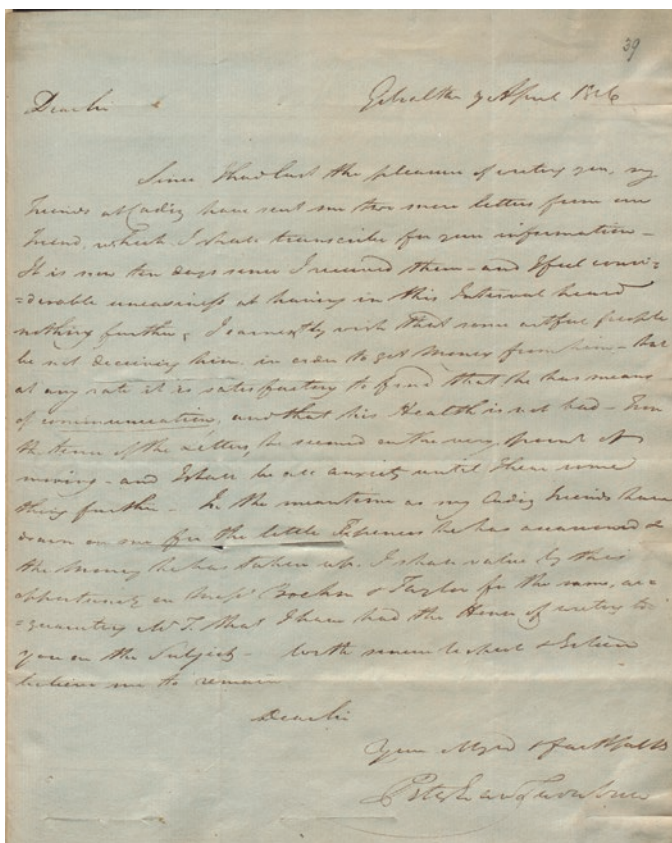 39
Gibralter 9 April 1816
Dear Sir
Since I had last the pleasure of writing you, my
friends at Cadiz have sent me two more letters from our
friend, which I shall transcribe for your information -
It is now ten days since I received them - and I feel consi=
=derable uneasiness at having in this Interval heard
nothing further, I earnestly wish that some artful people
be not deceiving him in order to get Money from him - but
at any rate it is satisfactory to find that he has means
of communication, and that his Health is not bad - From
the tenor of the Letters, he seemed on the very point of
moving - and I shall be all anxiety until I hear some
thing further - In the meantime as my Cadiz friends have
drawn on me for the little Expences he has occasioned &
the Money he has taken up, I shall value by this
opportunity on Mess Boehm & Taylor for the same, ac
=quainting Mr T. that I have had the Honor of writing to
you on the Subject - With much respect & Esteem
believe me to remain
Dear Sir
Your & faithfull